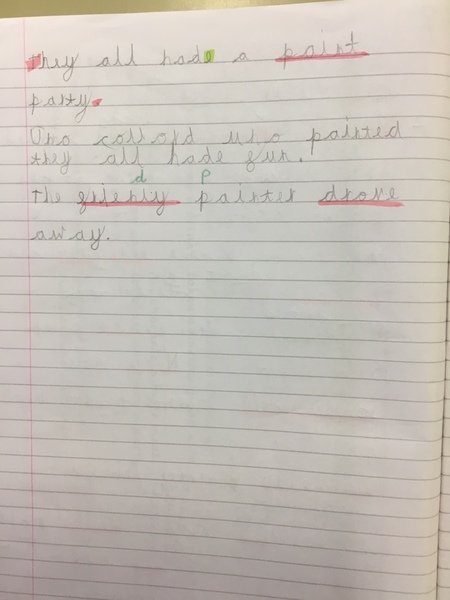 they all hade a paint
party.
Who collord who painted
they all hade fun.
d p
The frienly painter drove
away.